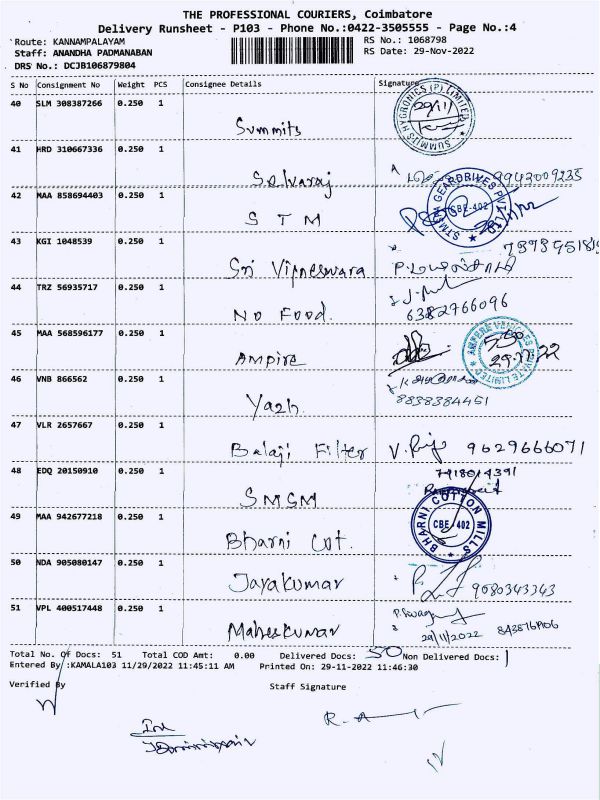 THE PROFESSIONAL COURIERS, Coimbatore
Delivery Runsheet - P103 - Phone No.:0422-3505555 - Page No.:4
Route: KANNAMPALAYAM
RS No.: 1068798
Staff: ANANDHA PADMANABAN
RS Date: 29-Nov-2022
DRS No.: DCJB106879804
S No Consignment No Weight PCS Consignee Details Signature
40 SLM 308387266 0.250 1 Summits
SUMMITS HYGRONICS (P) LIMITED 29/11
41 HRD 310667336 0.250 1 Selvaraj 9943009235
42 MAA 858694403 0.250 1 STM
GEARDRIVES CBE-402
43 KGI 1048539 0.250 1 Sri Vigneswara
44 TRZ 56935717 0.250 1 No Food. 6382766096
45 MAA 568596177 0.250 1 Ampire
AMPERE VEHICLES PRIVATE LIMITED 5.30 29.11.22
46 VNB 866562 0.250 1 Yazh 8838384451
47 VLR 2657667 0.250 1 Balaji Filter 9629666071
48 EDQ 20150910 0.250 1 SMSM
49 MAA 942677218 0.250 1 Bharni Cot.
BHARNI COTTON MILLS CBE-402
50 NDA 905080147 0.250 1 Jayakumar 9080343343
51 VPL 400517448 0.250 1 Maheskumar
29/11/2022
Total No. Of Docs: 51 Total COD Amt: 0.00 Delivered Docs: 50 Non Delivered Docs: 1
Entered By :KAMALA103 11/29/2022 11:45:11 AM Printed On: 29-11-2022 11:46:30
Verified By Staff Signature